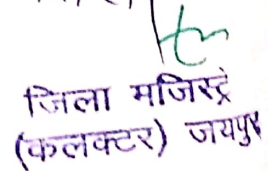 जिला मजिस्ट्रे
(कलक्टर) जयपुर